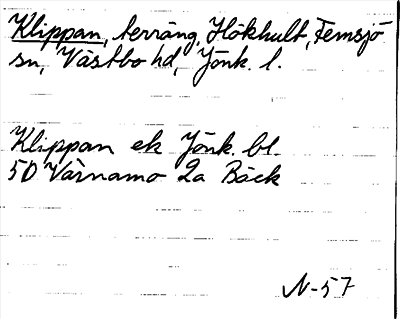 Klippan, terräng, Hökhult, Femsjö
sn, Västbo hd, Jönk. l.
Klippan ek Jönk. bl.
50 Värnamo 2a Bäck
N-57